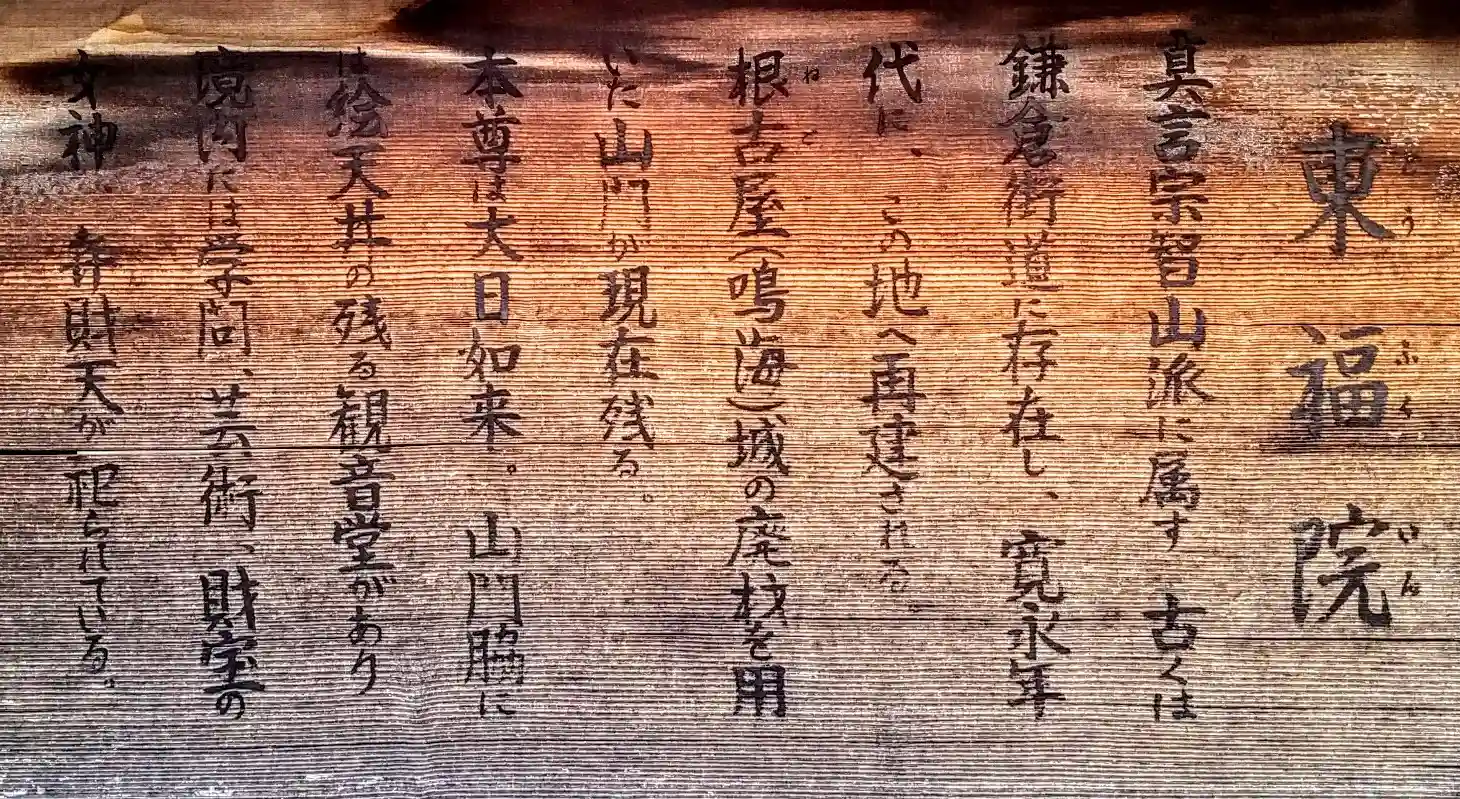 東福院
とうふくいん
真言宗智山派に属す 古くは
鎌倉街道に存在し、寛永年
代に、この地へ再建される。
根古屋(鳴海)城の廃材を用
ねご
いた山門が現在残る。
本尊は大日如来。山門脇に
は絵天井の残る観音堂があり
境内には学問、芸術、財宝の
女神、弁財天が祀られている。